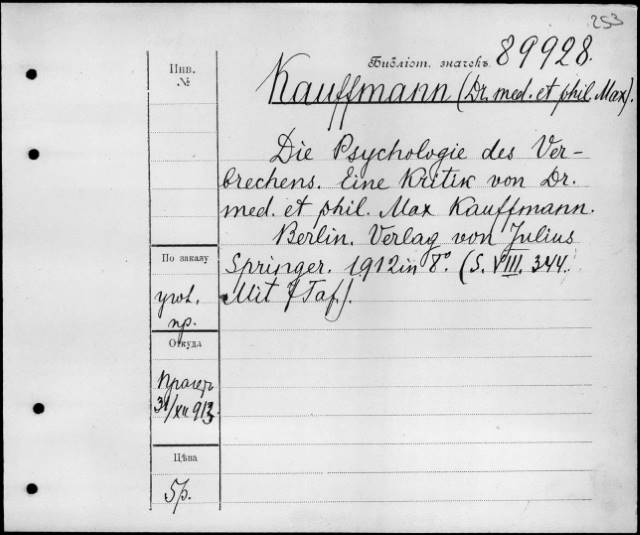 253
Библіот. значекъ 89928.
Инв.
№
Kauffmann (Dr. med. et phil. Max).
Die Psychologie des Ver-
brechens. Eine Kritik von Dr.
med. et phil. Max Kauffmann.
Berlin. Verlag von Julius
Springer. 1912 in 8°. (S. VIII. 344.
Mit Taf.).
По заказу
угол.
пр.
Откуда
31/XII 913
Цѣна
5р.